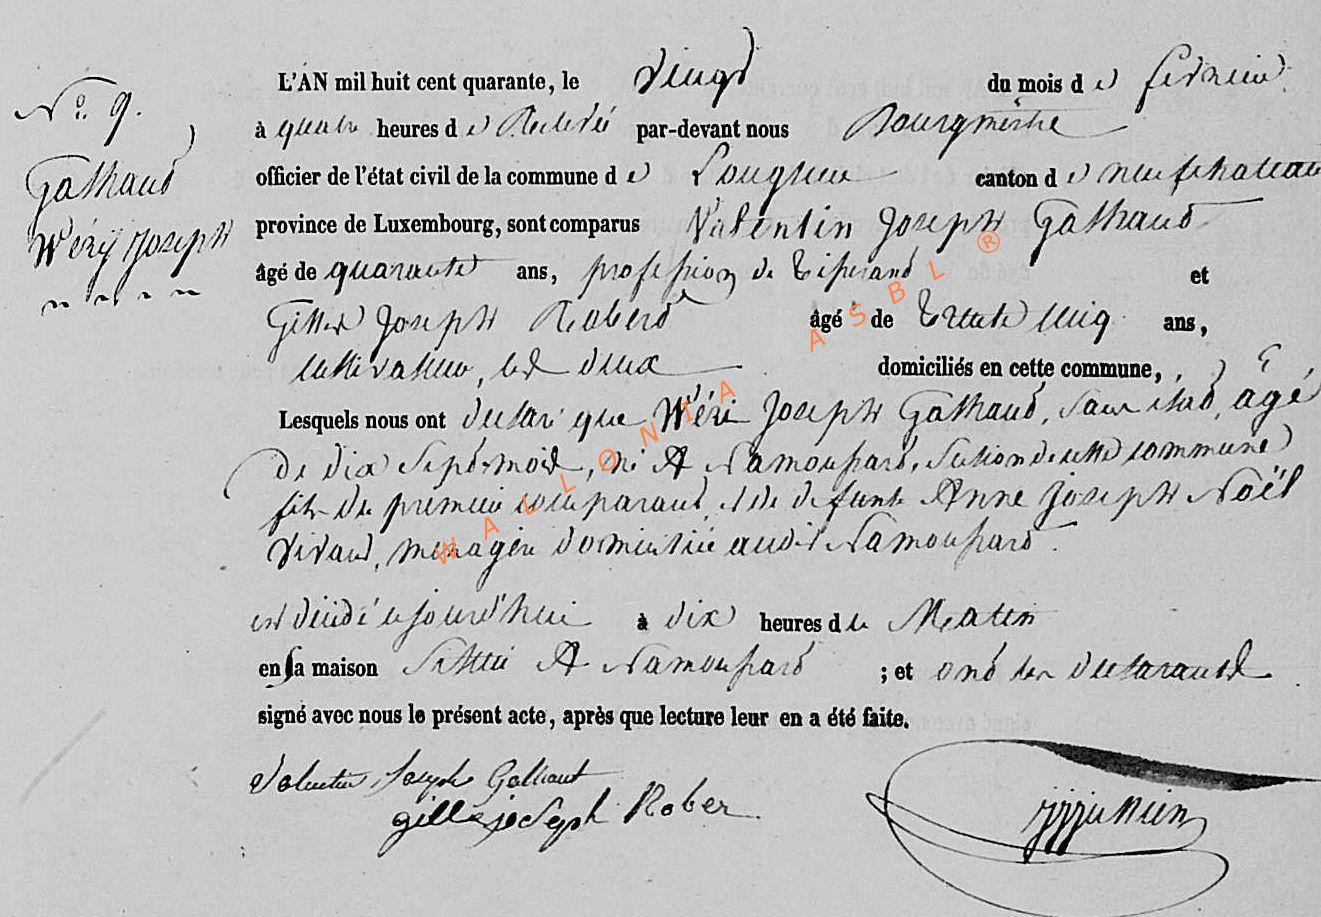 N.° 9.
Galhaud
Wéry Joseph
L'AN mil huit cent quarante, le vingt du mois de fevrier.
à quatre heures de Relevée par-devant nous Bourgmestre
officier de l'état civil de la commune de Longlier canton de neufchateau
province de Luxembourg, sont comparus Valentin Joseph Galhaud
âgé de quarante ans, profession de Tisserand et
Gilles Joseph Roberd âgé de Trente cinq ans,
cultivateur, les deux domiciliés en cette commune,
Lesquels nous ont declaré que Wéri Joseph Galhaud, sans état, âgé
de dix sept mois, né A Namoussard, section de cette commune
fils du premier comparant, et de defunte Anne Joseph Noël
vivant, menagère domiciliée audit Namoussard.
est décédé cejourd'hui à dix heures du Matin
en sa maison située A Namoussard ; et ont les declarants
signé avec nous le présent acte, après que lecture leur en a été faite.
Valentin Joseph Galhaut
gille joseph Rober
WALLONIA ASBL ®